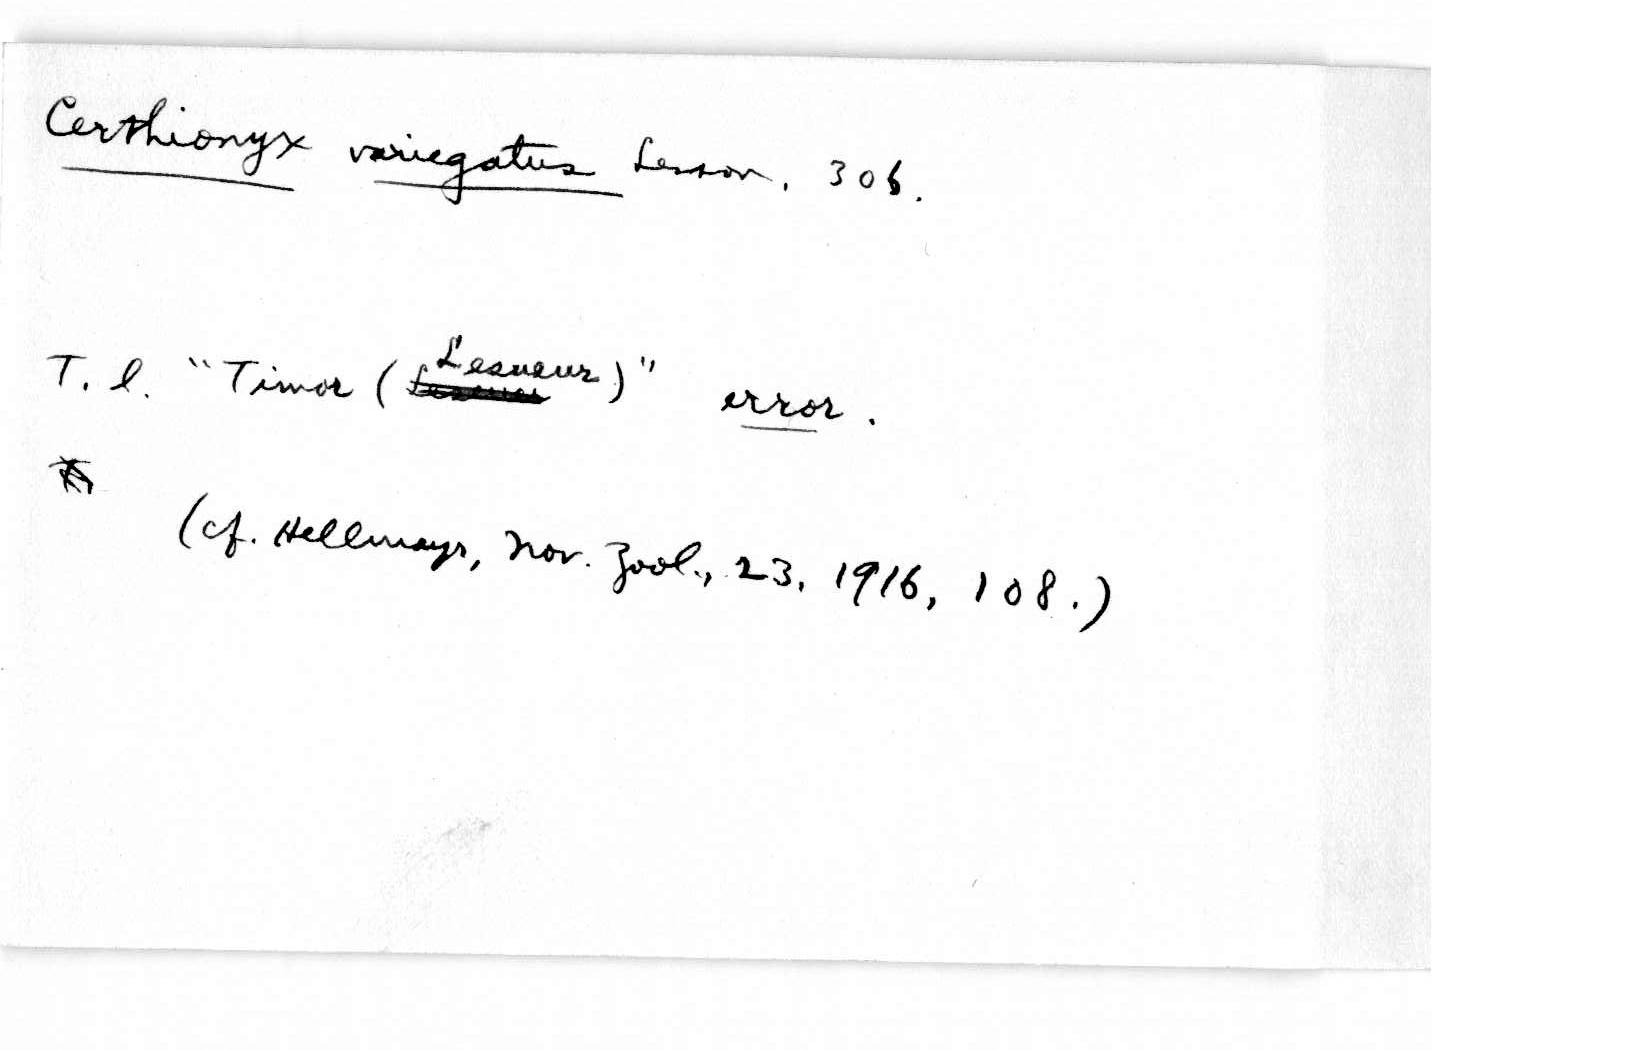 Certhionyx variegatus Lesson, 306.
T. l. "Timor (Lesueur)" error.
(cf. Hellmayr, Nov. Zool., 23, 1916, 108.)